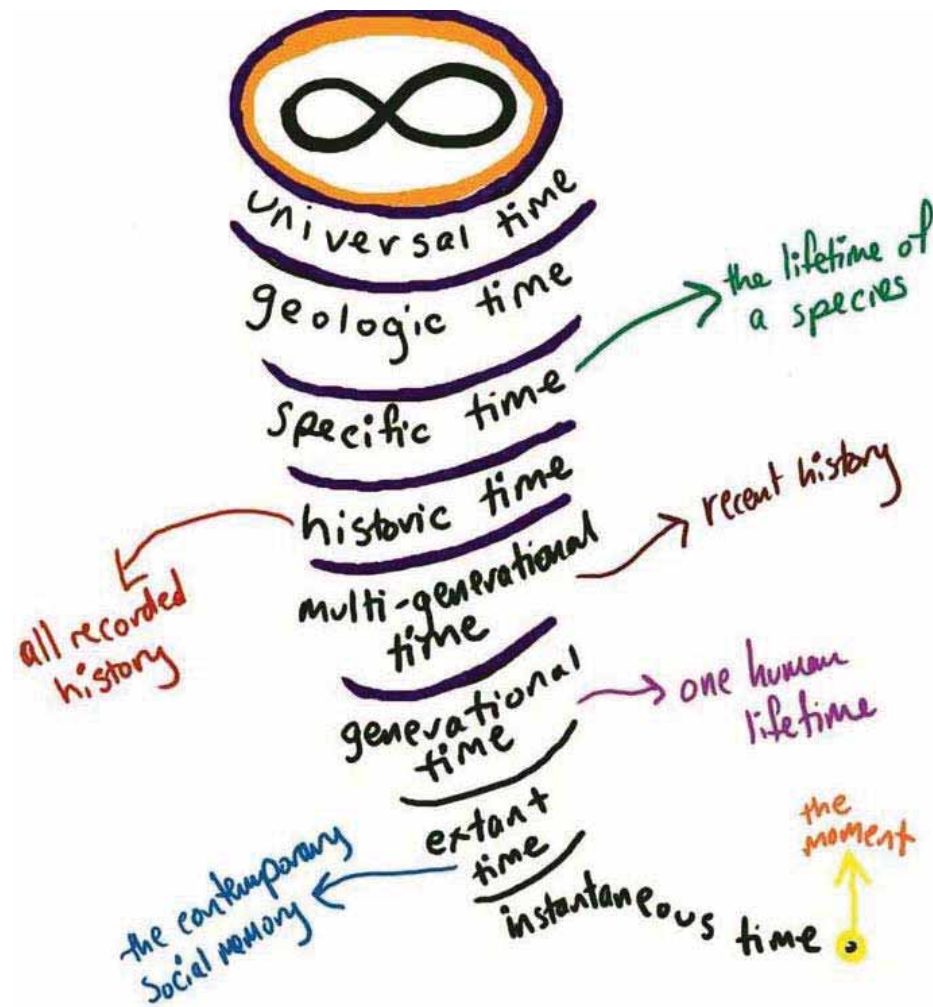 ∞
universal time
geologic time
the lifetime of
a species
specific time
historic time
all recorded
history
multi-generational
time
recent history
generational
time
one human
lifetime
extant
time
the contemporary
social memory
instantaneous time
the
moment